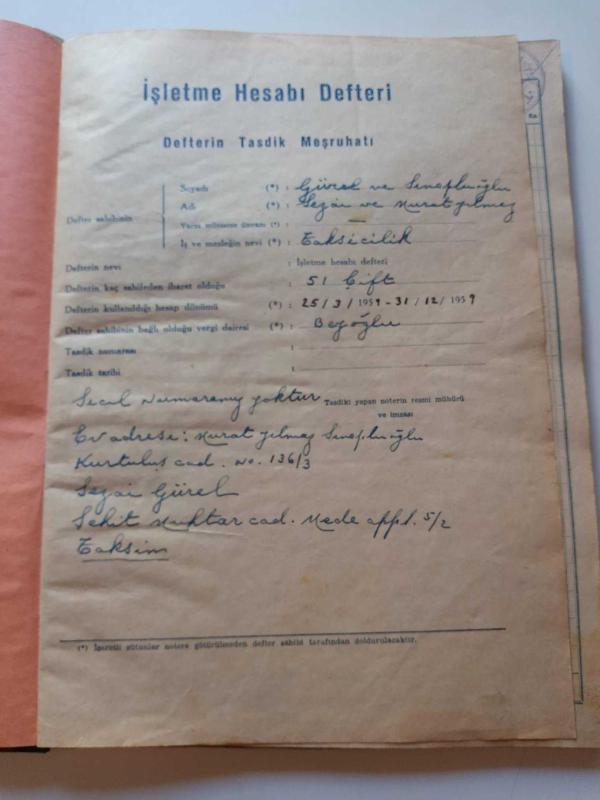 İşletme Hesabı Defteri
Defterin Tasdik Meşruhatı
Defter sahibinin
Soyadı (*) : Gürel ve Sinaplıoğlu
Adı (*) : Sezai ve Murat Yılmaz
Varsa müessese ünvanı (*) :
İş ve mesleğin nevi (*) : Taksicilik
Defterin nevi : İşletme hesabı defteri
Defterin kaç sahifeden ibaret olduğu : 51 Çift
Defterin kullanıldığı hesap dönümü (*) : 25/3/1959-31/12/1959
Defter sahibinin bağlı olduğu vergi dairesi (*) : Beyoğlu
Tasdik numarası :
Tasdik tarihi :
Sicil Numaramız yoktur Tasdiki yapan noterin resmi mühürü
ve imzası
Ev adresi: Murat Yılmaz Sinaplıoğlu
Kurtuluş cad. No. 136/3
Sezai Gürel
Şehit Muhtar cad. Mede appt. 5/2
Taksim
(*) İşaretli sütunlar notere götürülmeden defter sahibi tarafından doldurulacaktır.